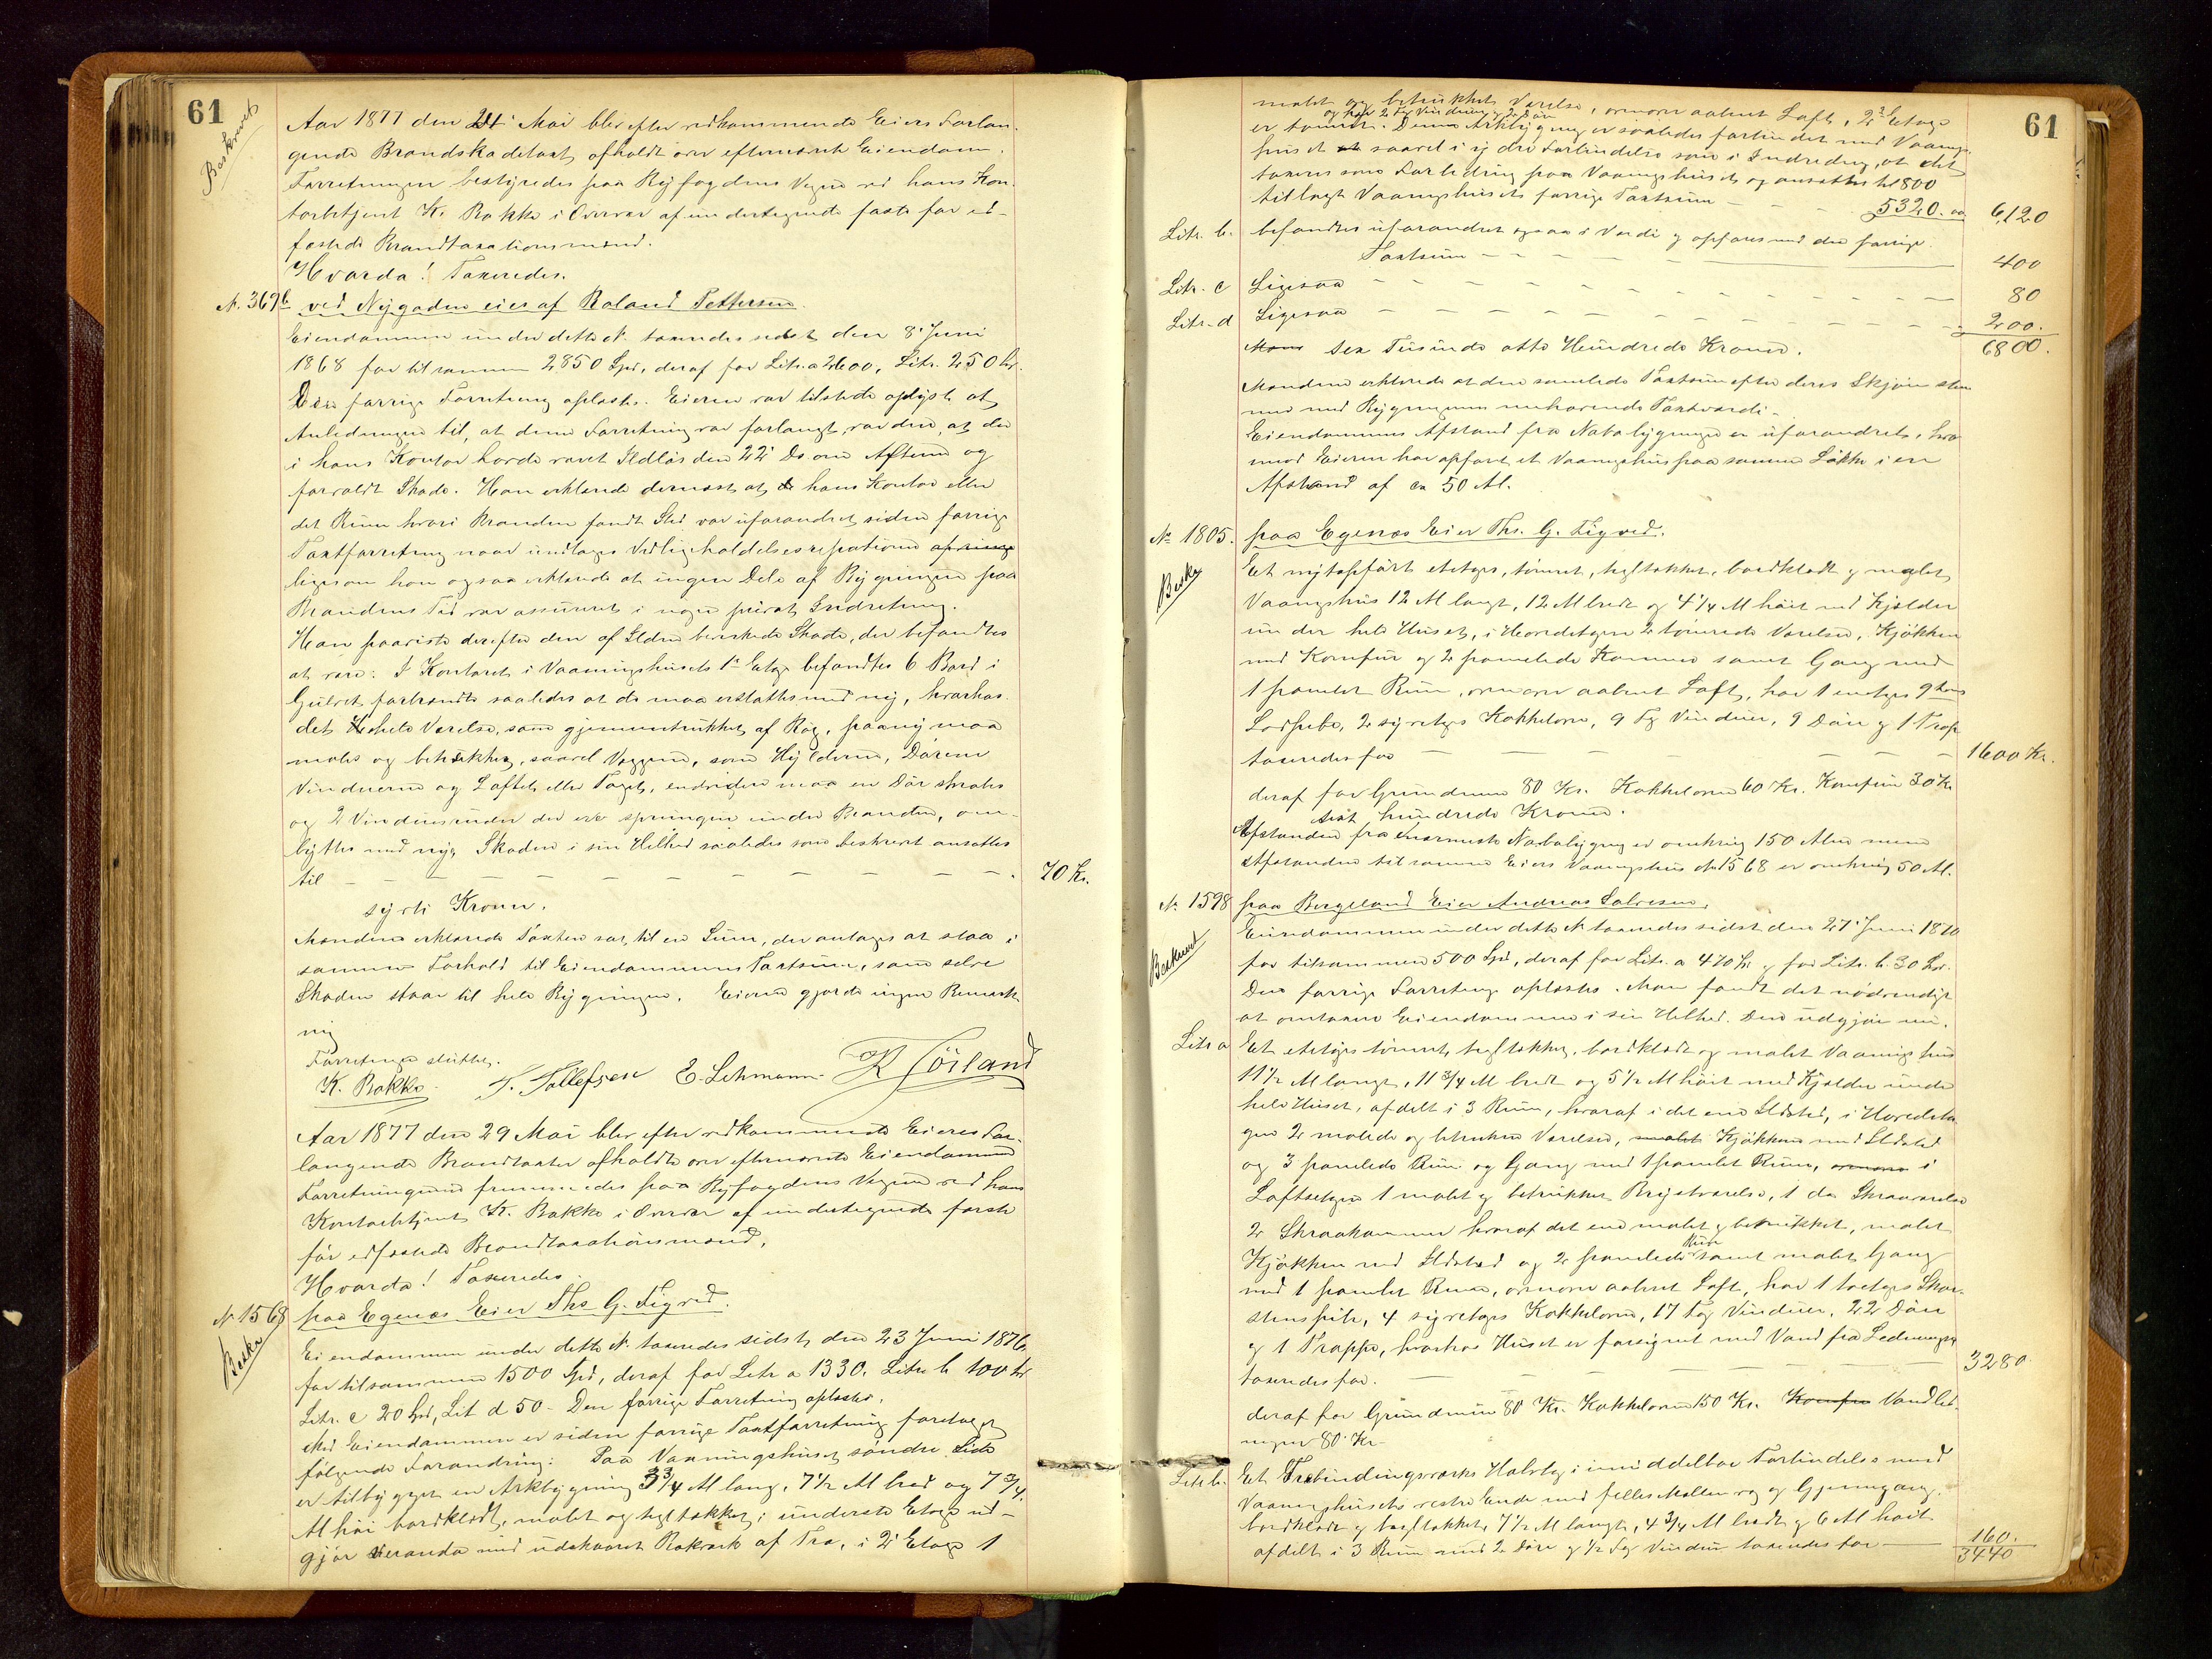 61
Beskrevet
Aar 1877 den 24' Mai blev efter vedkommende Eiers Forlan-
gende Brandskadetaxt afholdt over efternævnte Eiendom.
Forretningen bestyredes paa Byfogdens Vegne ved hans Kon-
torbetjent K. Bakke i Overvær af undertegnede faste for ed-
fæstede Brandtaxationsmænd.
Hvorda! Taxeredes.
N. 369b ved Nygaden eies af Roland Pettersen.
Eiendommen under dette N. taxeredes sidst den 8' Juni
1868 for tilsammen 2850 Spd, deraf for Litr. a 2600, Litr. 250 Spd.
Den forrige Forretning oplæstes. Eieren var tilstede oplyste at
Anledningen til, at denne Forretning var forlangt, var den, at der
i hans Kontor havde været Ildløs den 22' Ds om Aftenen og
forvoldt Skade. Han erklærede dernæst at hans Kontor eller
det Rum hvori Branden fandt Sted var uforandret siden forrige
Taxtforretning naar undtages Vedligeholdelsesreparationer
ligesom han ogsaa erklærede at ingen Dele af Bygningen paa
Brandens Tid var assureret i nogen privat Indretning.
Han paaviste derefter den af Ilden bevirkede Skade, der befandtes
at være: I Kontoret i Vaaningshusets 1' Etage befandtes 6 Bord i
Gulvet forbrændte saaledes at de maa erstattes med ny, hvorhos
det hele Værelse, som gjennemtrukket af Røg, paany maa
males og betrækkes, saavel Væggene, som Hylderne, Dørene
Vinduerne og Loftet eller Taget, endvidere maa en Dør
og 2 Vinduesruder der ere sprungne under Branden, om-
byttes med nye, Skaden i sin Helhed saaledes som beskrevet ansattes
til — — — — — — — — — — 70 Kr.
syvti Kroner.
Mændene erklærede Taxten sat til en Sum, der antages at staa i
samme Forhold til Eiendommens Taxtsum, som selve
Skaden staar til hele Bygningen. Eieren gjorde ingen Bemærk-
ning
Forretningen sluttet.
K. Bakke. T. Tollefsen E. Lehmann. R Törland
Aar 1877 den 29 Mai blev efter vedkommende Eieres For-
langende Brandtaxter afholdte over efternævnte Eiendomme
Forretningerne fremmedes paa Byfogdens Vegne ved hans
Kontorbetjent K. Bakke i Overvær af undertegnede faste
for edfæstede Brandtaxationsmænd.
Hvorda! Taxeredes
N. 1568 paa Egenæs Eier Ths G. Tigved.
Beskr
Eiendommen under dette N. taxeredes sidst den 23 Juni 1876
for tilsammen 1500 Spd, deraf for Litr a 1330. Litr. b 100 Spd
Litr. c 20 Spd, Lit d 50 - Den forrige Forretning oplæstes.
Med Eiendommen er siden forrige Taxtforretning foretaget
følgende Forandring: Paa Vaaningshuset søndre Side
er tilbygget en Arkbygning 3 3/4 Al lang, 7 1/2 Al bred og 7 3/4
Al høi bordklædt, malet og tegltækket; underste Etage ud-
gjør Veranda med udskaaret Rækværk af Træ, i 2' Etage 1
61
malet og betrukket Værelse, ovenover aabent Loft, 2' Etage
og har 2 Fag Vinduer, 2 Døre
er tømret. Denne Arkbygning er saaledes forbundet med Vaanings-
huset saavel i ydre Forbindelse som i Indredning, at det
taxeres som Forbedring paa Vaaningshuset og ansættes til 800
tillagt Vaaningshusets forrige Taxtsum — — 5320. 6120
Litr. b. befandtes uforandret ogsaa i Værdi og opføres med den forrige
Taxtsum — — — — 400
Litr. c Ligesaa — — — — 80
Litr. d Ligesaa — — — — 200.
sex Tusinde otte Hundrede Kroner. 6800.
Mændene erklærede at den samlede Taxtsum efter deres Skjøn stem-
mer med Bygningens nuhavende Taxtværdi.
Eiendommens Afstand fra Nabobygninger er uforandret, hvor
imod Eieren har opført et Vaaningshus paa samme Løkke i en
Afstand af ca 50 Al.
No 1805. paa Egenæs Eier Ths. G. Tigved.
Beskr
Et nyt opført etetages, tømret, tegltækket, bordklædt og malet
Vaaningshus 12 Al langt, 12 Al bredt og 4 1/4 Al høit med Kjelder
under hele Huset, i Hovedetagen 2 tømrede Værelser, Kjøkken
med Komfur og 2 panelede Kammer samt Gang med
1 panelet Rum, ovenover aabent Loft, har 1 enetages
2 syvetages Kakkelovne, 9 Fag Vinduer, 9 Døre og 1 Trappe
taxeredes for — — — — — 1600 Kr.
deraf for Grundmur 80 Kr. Kakkelovne 60 Kr. Komfur 30 Kr
hundrede Kroner.
Afstanden fra nærmeste Nabobygning er omkring 150 Alen mens
Afstanden til samme Eiers Vaaningshus No 1568 er omkring 50 Al.
N. 1598 paa Bergeland Eier Andreas Salvesen.
Beskrevet
Eiendommen under dette N. taxeredes sidst den 27' Juni 1870
for tilsammen 500 Spd, deraf for Litr. a 470 Spd og for Litr. b. 30 Spd.
Den forrige Forretning oplæstes. Man fandt det nødvendigt
at omtaxere Eiendommen i sin Helhed. Den udgjør nu.
Litr a Et etetages tømret, tegltækket, bordklædt og malet Vaaningshus
11 1/2 Al langt, 11 3/4 Al bredt og 5 1/2 Al høit med Kjelder under
hele Huset, afdelt i 3 Rum, hvoraf i det ene Ildsted, i Hovedeta-
gen 2 malede og betrukne Værelser, Kjøkken med Ildsted
og 3 panelede Rum og Gang med 1 panelet Rum, i
Loftsetagen 1 malet og betrukket Brystværelse, 1 do Skraaværelse
2 Skraakammer hvoraf det ene malet og betrukket, malet
Kjøkken med Ildsted og 2 panelede Rum samt malet Gang
med 1 panelet Rum, ovenover aabent Loft, har 1 toetages Skor-
stenspibe, 4 syvetages Kakkelovne, 17 Fag Vinduer, 22 Døre
og 1 Trappe, hvorhos Huset er forsynet med Vand fra Ledningen
taxeredes for. — — — — 3280.
deraf for Grundmur 80 Kr. Kakkelovne 150 Kr. Vandled-
ningen 80 Kr
Litr b. Et Træbindingsværks Halvtag i umiddelbar Forbindelse med
Vaaningshusets vestre Ende med fælles Mellemvæg og Gjennemgang.
bordklædt og tegltækket, 7 1/2 Al langt, 4 3/4 Al bredt og 6 Al høit
afdelt i 3 Rum med 2 Døre og 1/2 Fag Vindue taxeredes for — 160.
3440